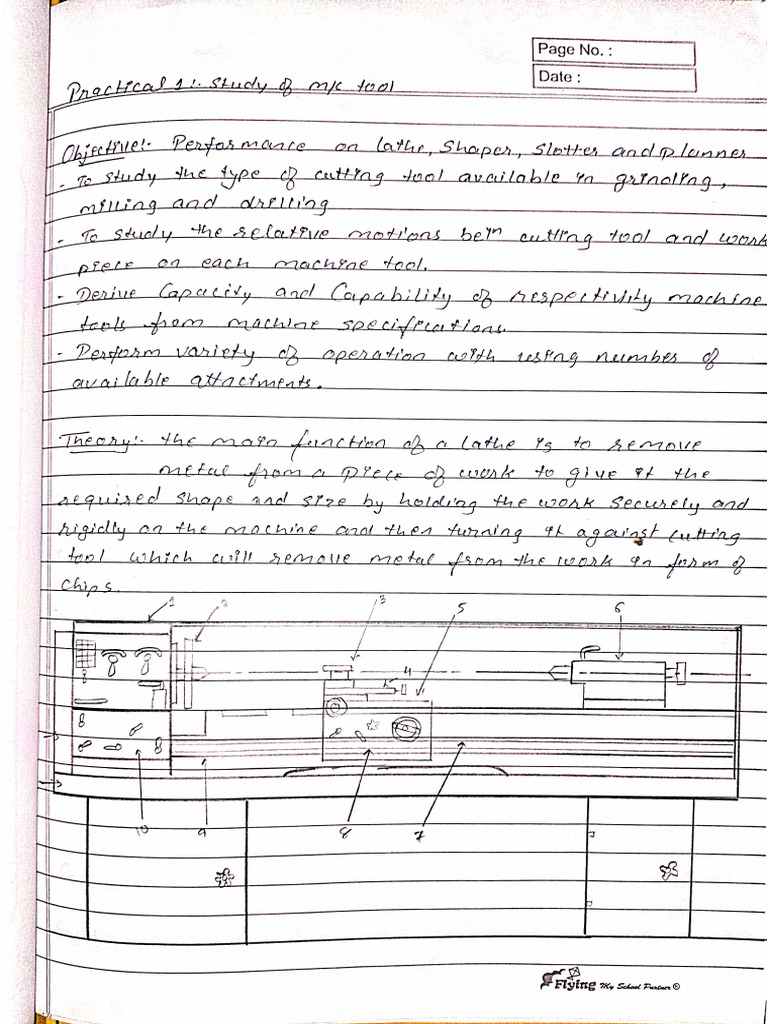 Page No. :
Date :
Practical 1:. Study of m/c tool
Objective:- Performance on lathe, Shaper, Slotter and planner
- To study the type of cutting tool available in grinding,
milling and drilling
- To study the relative motions betn cutting tool and work
piece on each machine tool.
- Derive Capacity and Capability of respectivity machine
tools from machine specifications.
- Perform variety of operation with using number of
available attactments.
Theory:- the main function of a lathe is to remove
metal from a piece of work to give it the
required shape and size by holding the work securely and
rigidly on the machine and then turning it against cutting
tool which will remove metal from the work in form of
chips.
1 2 3 5 6
4
10 9 8 7
Flying My School Partner ©